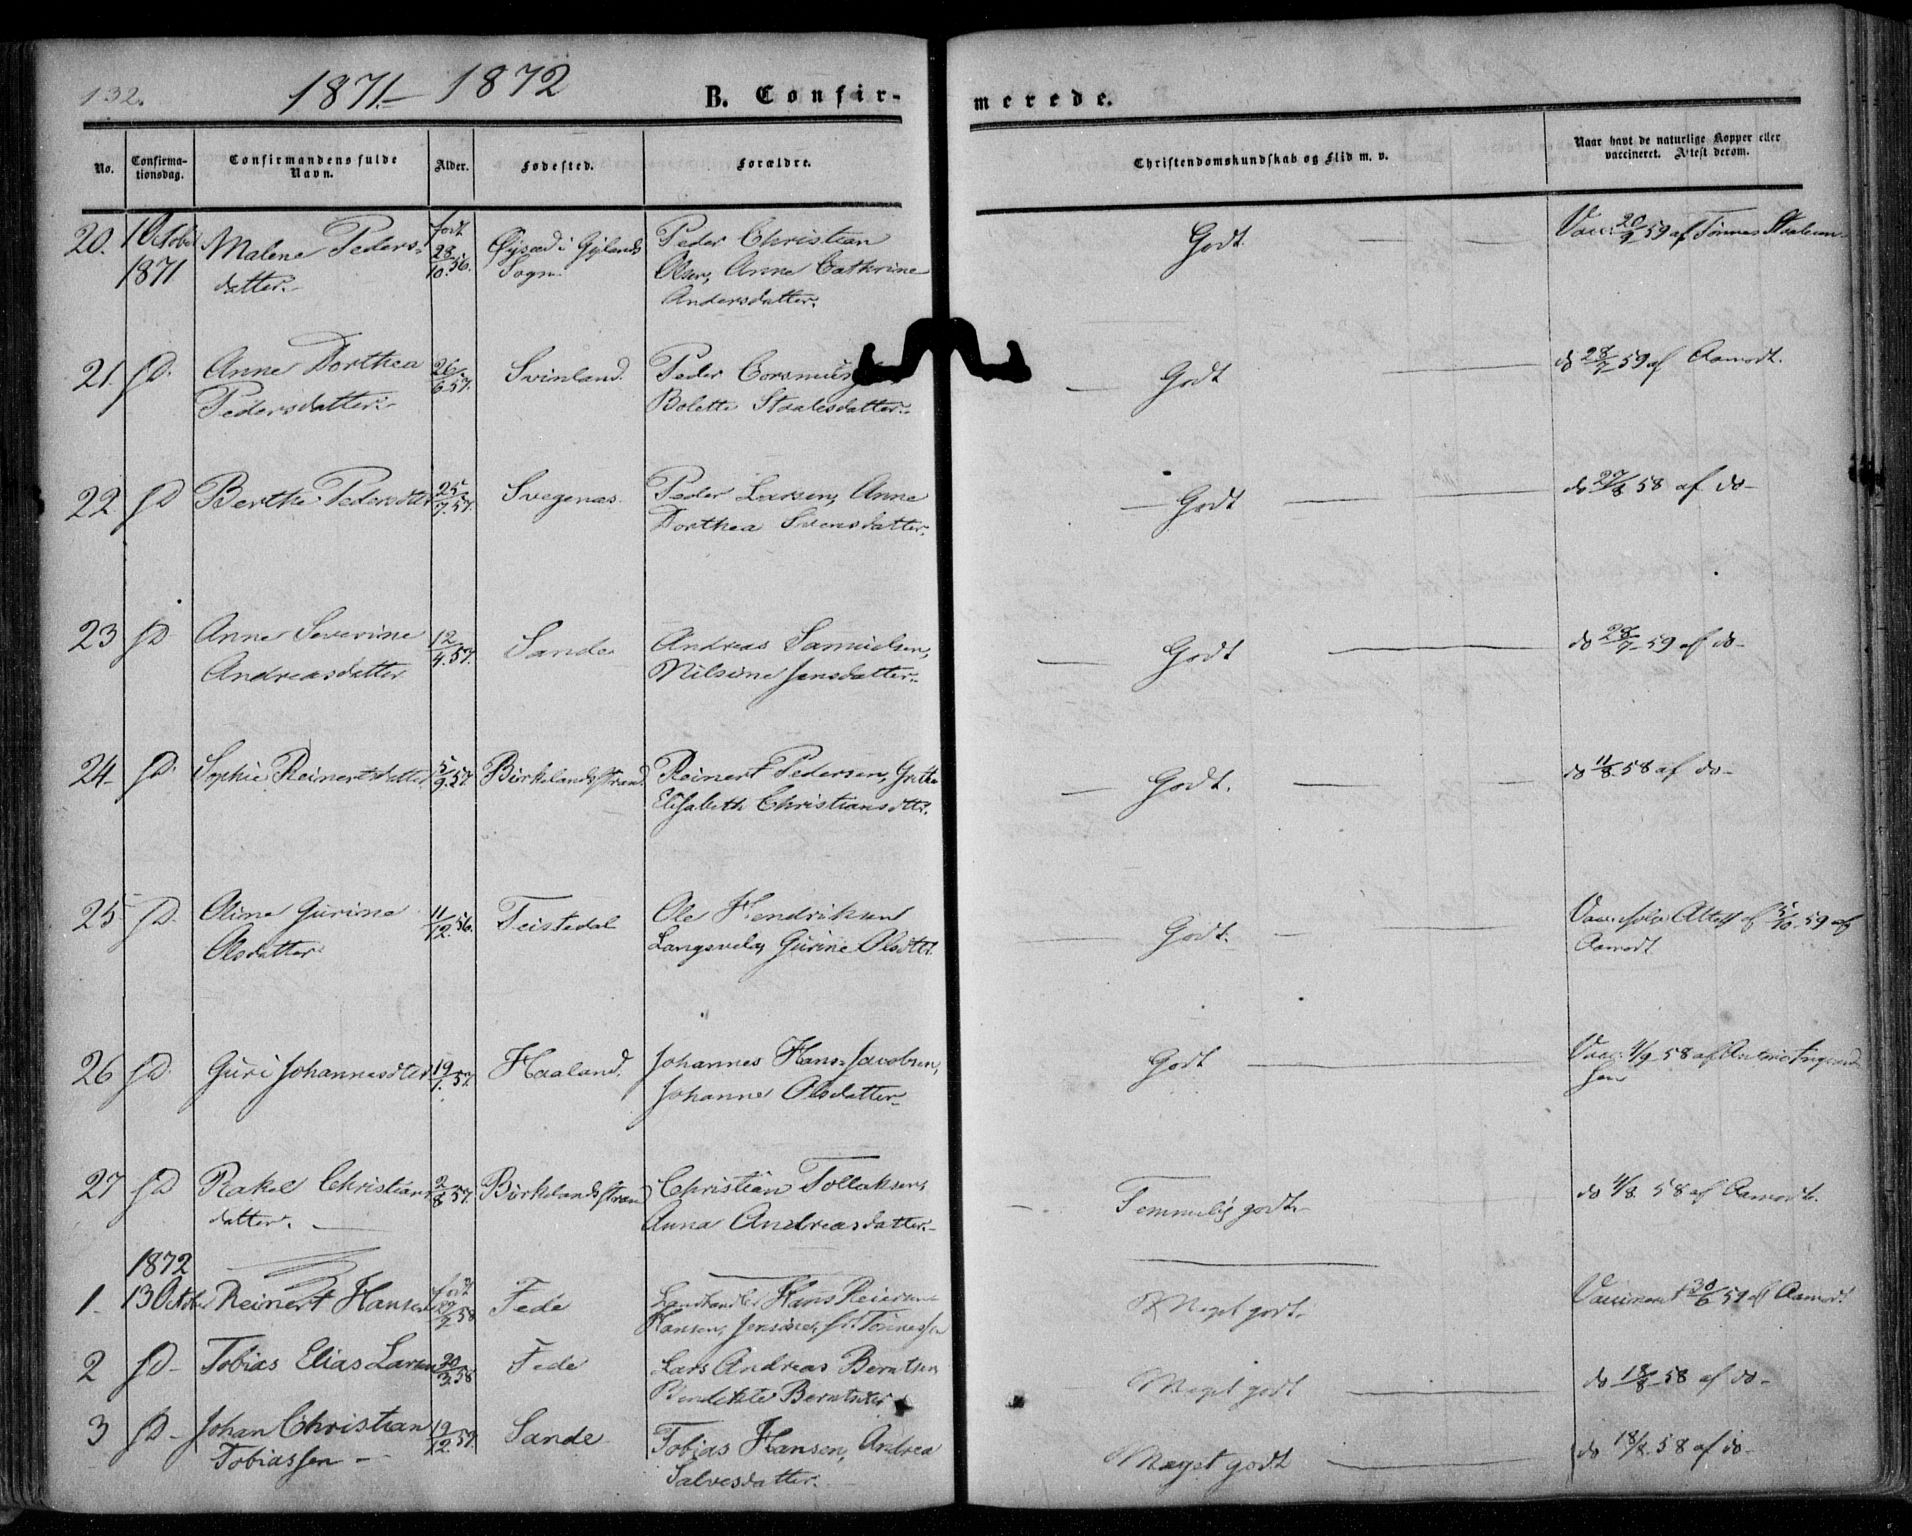 132.
1871 - 1872
B. Confir-
merede.
No.
Confirma-
tionsdag.
Confirmandens fulde
Navn.
Alder.
Fødested.
Forældre.
Christendomskundskab og Flid m. v.
Naar havt de naturlige Kopper eller
vaccineret. Attest derom.
20. 1 October Malene Peders- født Øysæd i Gylands Peder Christian Godt Vacc. 20/9 59 af Tønnes
1871 datter 28/10 56. Sogn Aar, Anne Cathrine
Andersdatter.
21. sD. Anne Dorthea 26/6 57. Svinland. Peder Godt do 28/7 59 af Aamodt.
Pedersdatter Bolette Staalesdatter
22. sD Berthe Pedersdter 25/7 57. Svegenæs Peder Larsen, Anne Godt do 27/8 58 af do-
Dorthea Svensdatter.
23 sD Anne Severine 12/4 57. Sande Andreas Samuelsen, Godt do 28/7 59 af do-
Andreasdatter Nilsine Jensdatter
24 sD. Sophie Reinertsdatter 5/9 57. Birkelandsstrand Reinert Pedersen, Gitte Godt. do 11/8 58 af do-
Elisabeth Christiansdtt.
25 sD. Oline Gurine 11/12 56. Teistedal Ole Hendriksen Godt. Vacc. ifølge Attest af 5/10 59 af
Olsdatter Gurine Olsdtr. Aamodt
26 sD. Guri Johannesdter 19/1 57. Haaland. Johannes Hans Jacobsen, Godt Vacc. 4/9 58 af
Johanne Olsdatter sen
27 sD Rakel Christians 2/8 57. Birkelandsstrand Christian Tollaksen, Temmelig godt. do 4/8 58 af Aamodt.
datter. Anna Andreasdatter.
1872
1. 13 Octob Reinert Hansen født Fede Landhandler Hans Reiersen Meget godt. Vaccineret 30/6 59 af Aamodt
58 Hansen, Jensine, f. Tønnessen
2 sD- Tobias Elias Larsen 20/3 58 Fede Lars Andreas Berntsen Meget godt do 18/8 58 af do-
3 sD- Johan Christian 19/12 57. Sande Tobias Hansen, Andrea Meget godt do 18/8 58 af do-
Tobiassen - Salvesdatter.